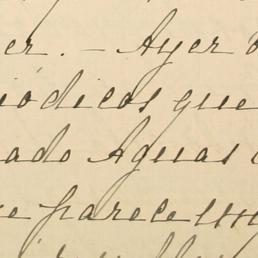 er. — Ayer
iódicos que
ado Aguas
e parece un